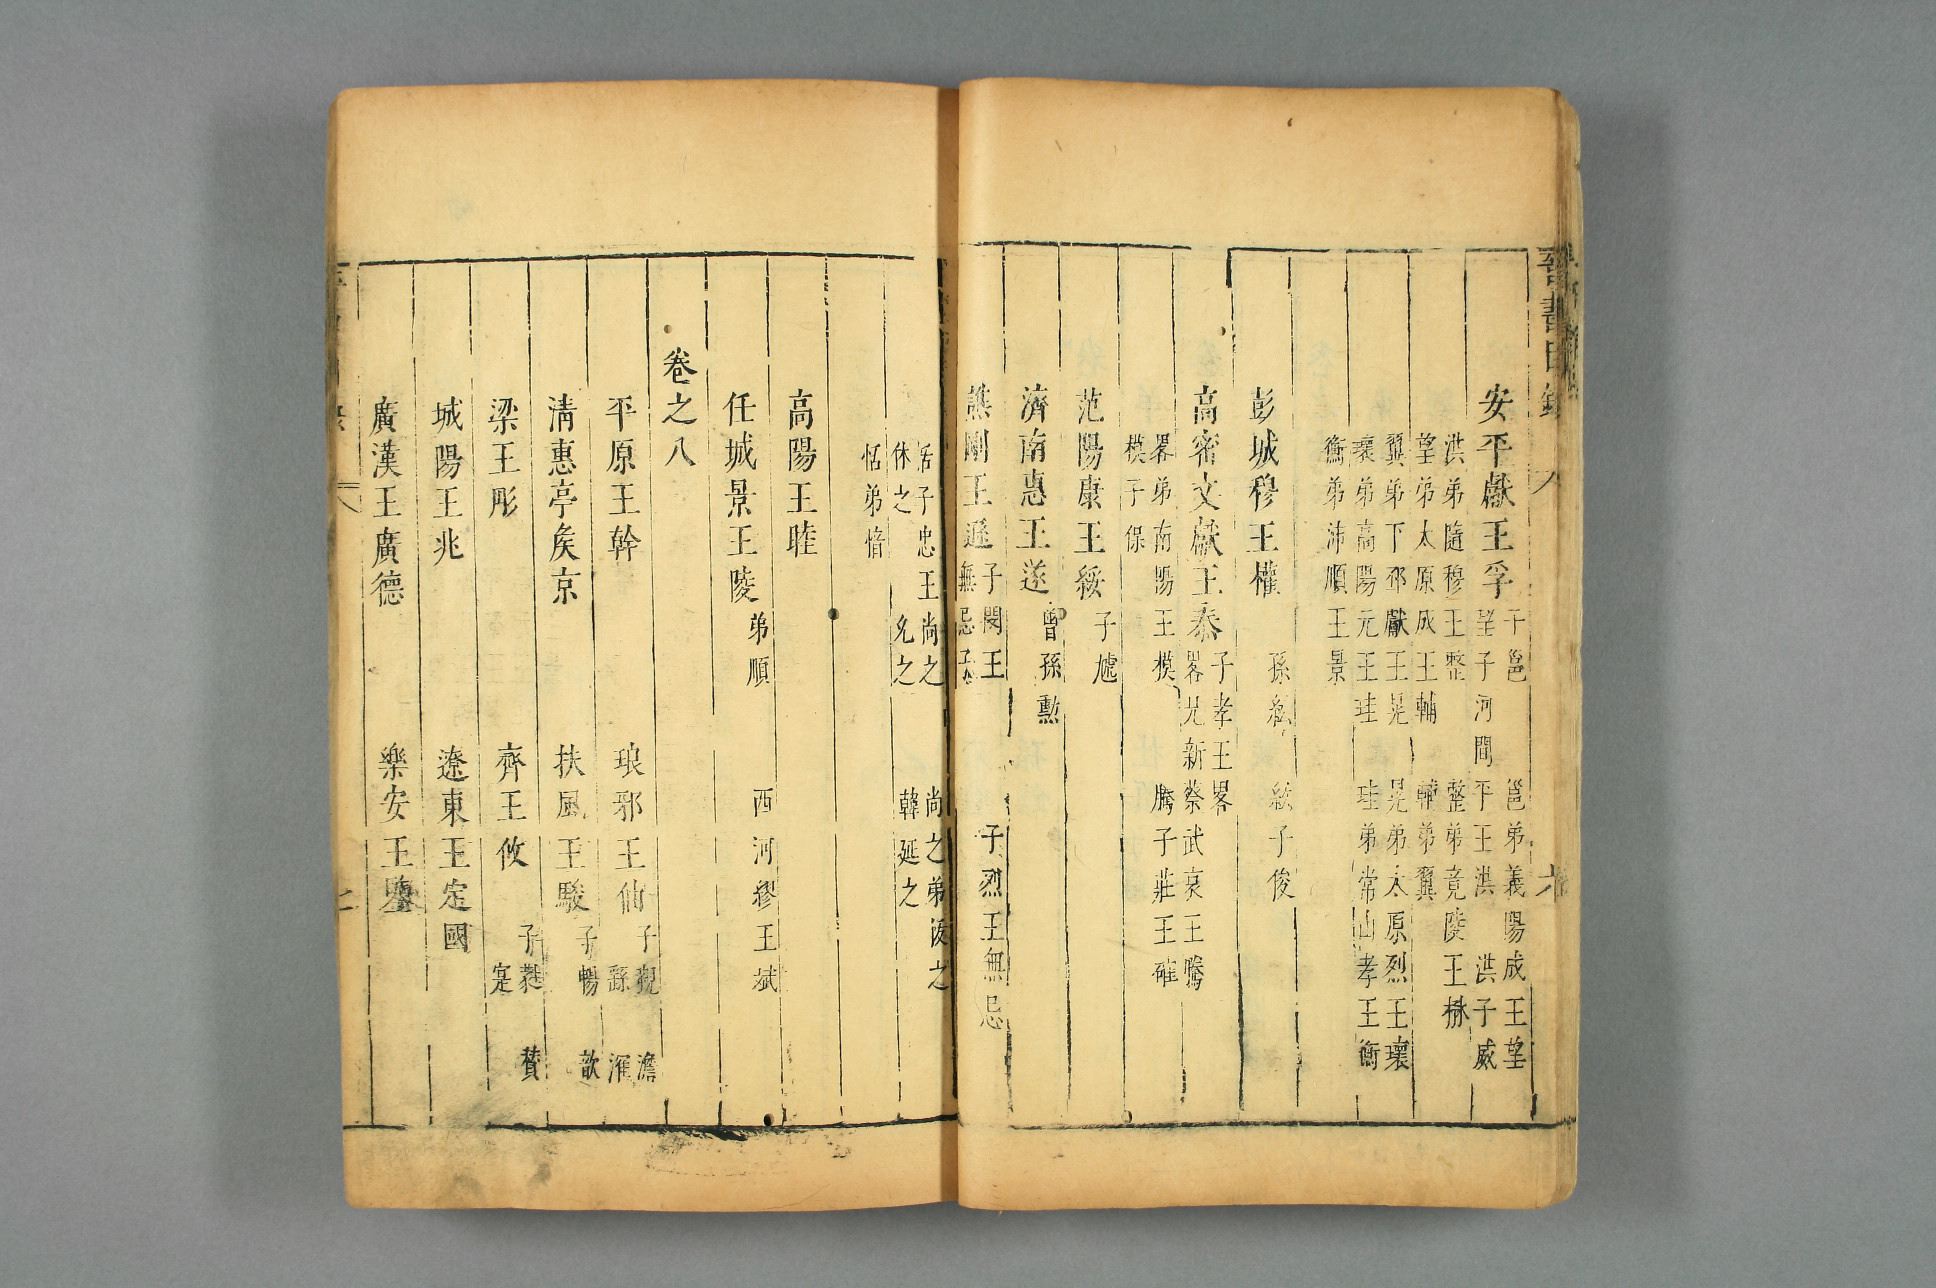 晉書目錄 八
安平獻王孚 子邕 邕弟義陽成王望
望子河間平王洪 洪子威
洪弟隨穆王整 整弟竟陵王楙
望弟太原成王輔 輔弟翼
翼弟下邳獻王晃 晃弟太原烈王瓌
瓌弟高陽元王珪 珪弟常山孝王衡
衡弟沛順王景
彭城穆王權 孫紘 紘子俊
高密文獻王泰 子孝王畧
畧兄新蔡武哀王騰
畧弟南陽王模 騰子莊王確
模子保
范陽康王綏 子虓
濟南惠王遂 曾孫勲
譙剛王遜 子閔王
無忌子 子烈王無忌
恬子忠王尚之 尚之弟恢之
休之 允之 韓延之
恬弟愔
高陽王睦
任城景王陵 弟順 西河繆王斌
卷之八
平原王幹 琅邪王伷 子覲 澹
繇 漼
清惠亭矦京 扶風王駿 子暢 歆
梁王彤 齊王攸 子蕤 贊
寔
城陽王兆 遼東王定國
廣漢王廣德 樂安王鑒